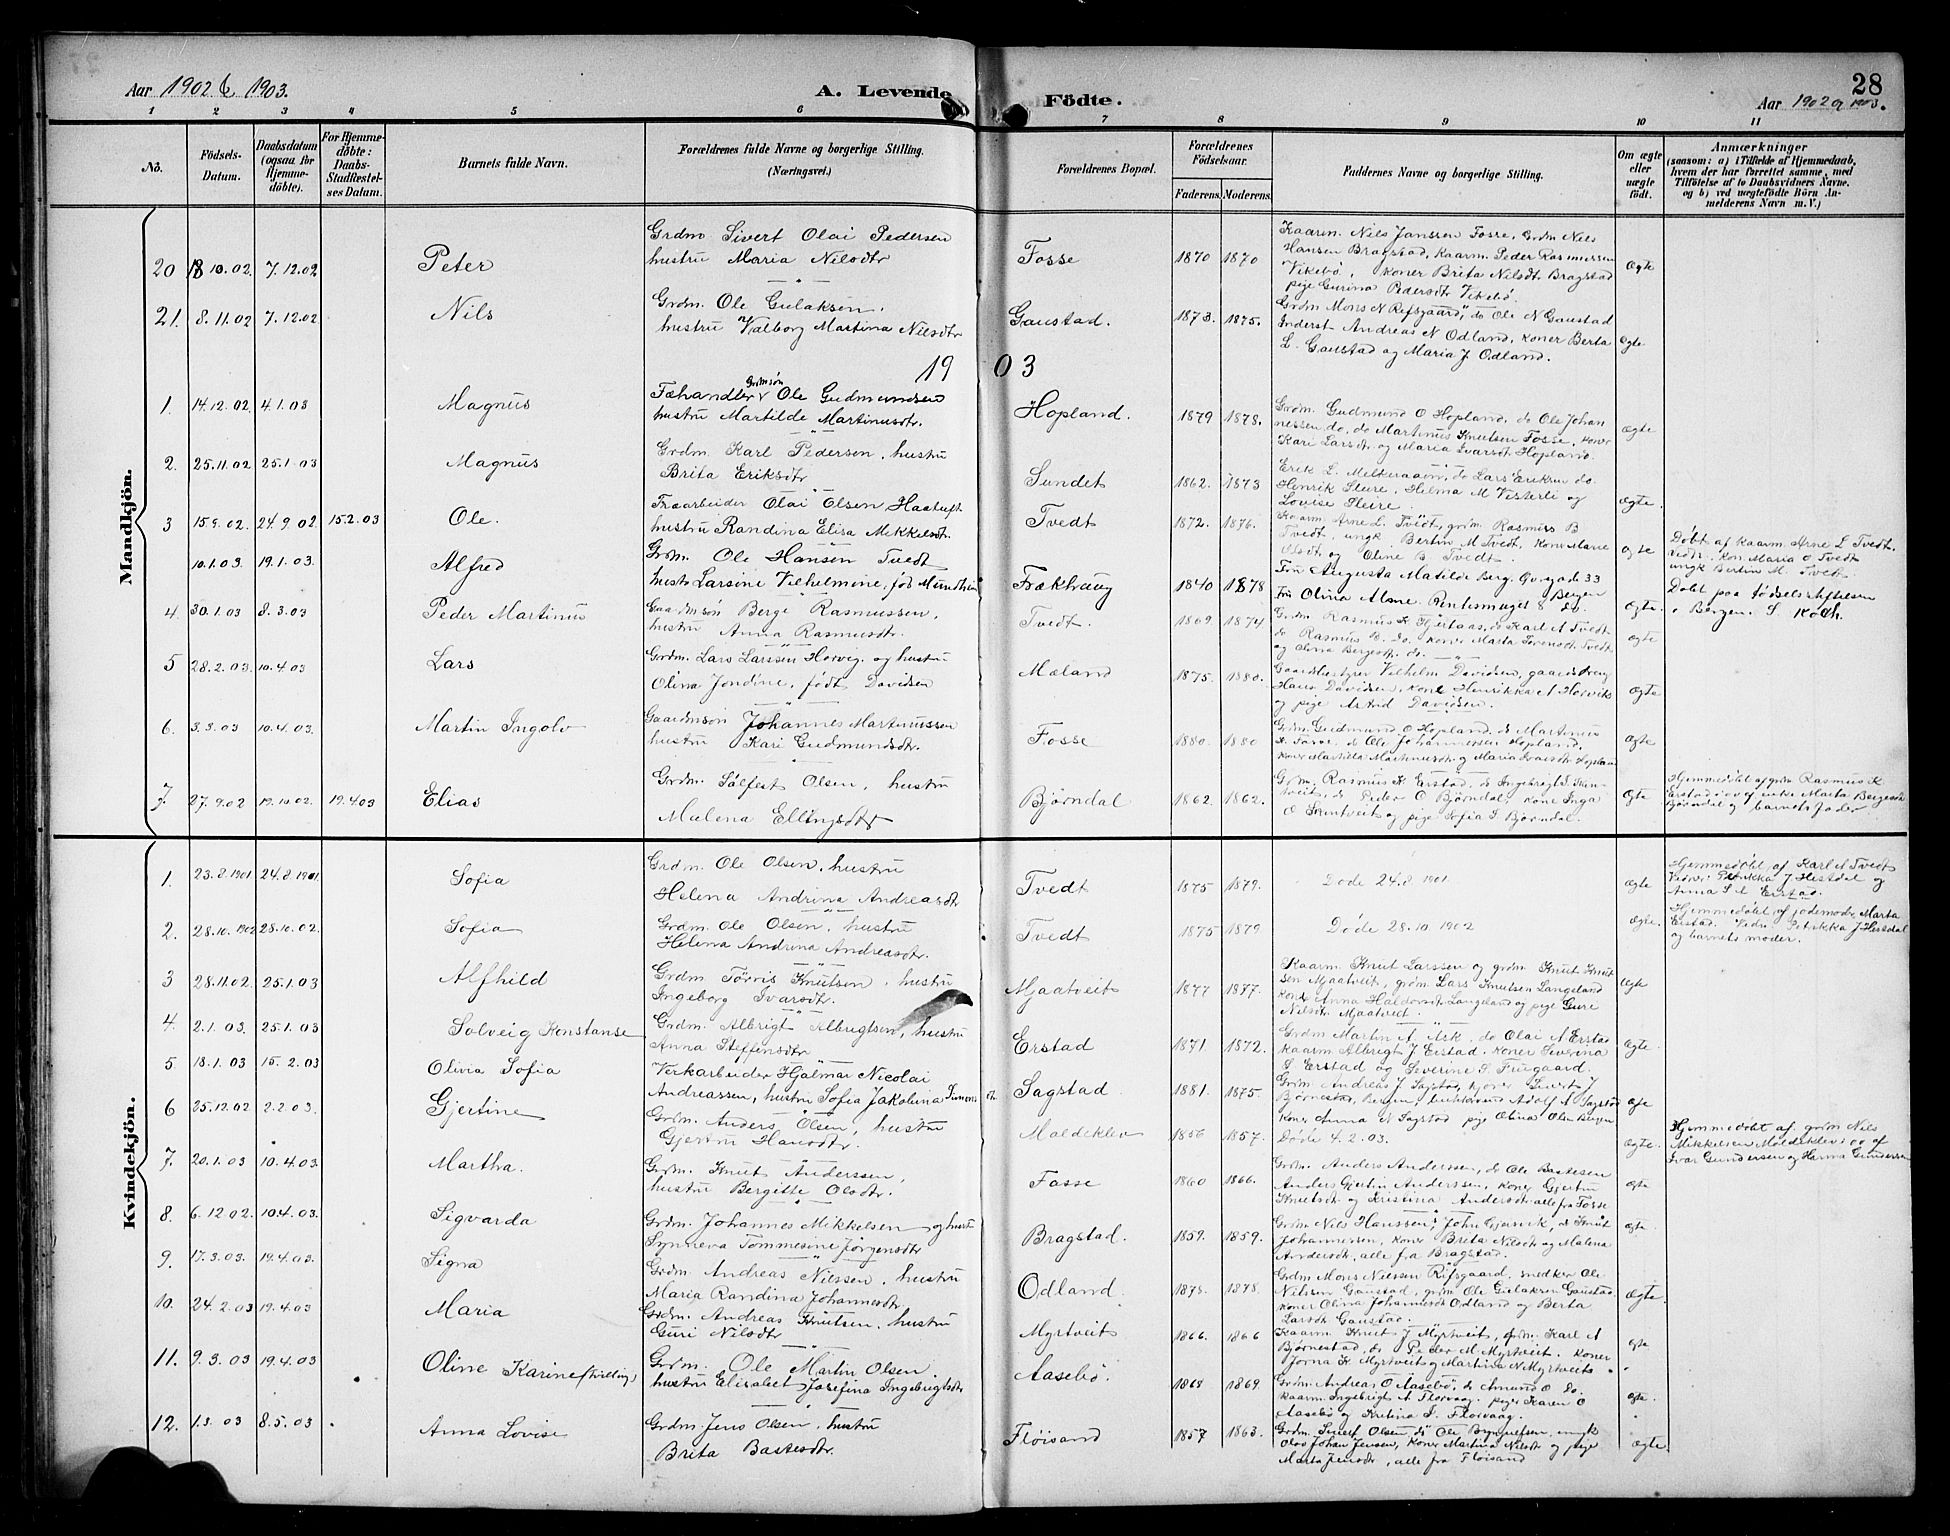 Aar 1902 & 1903.
A. Levende Födte.
28
Aar 1902 og 1903.
1 2 3 4 5 6 7 8 9 10 11
No.
Födsels-Datum.
Daabsdatum (ogsaa for Hjemmedöbte).
For Hjemmedöbte: Daabs-Stadfæstelses Datum.
Barnets fulde Navn.
Forældrenes fulde Navne og borgerlige Stilling. (Næringsvei.)
Forældrenes Bopæl.
Forældrenes Födselsaar.
Faderens. Moderens.
Faddernes Navne og borgerlige Stilling.
Om ægte eller uægte födt.
Anmærkninger
(saasom: a) i Tilfælde af Hjemmedaab, hvem der har forrettet samme, med Tilföielse af to Daabsvidners Navne. og b) ved uægtefödte Börn Anmelderens Navn m. V.)
Mandkjön.
20 18 10.02. 7.12.02 Peter Grdm. Sivert Olai Pedersen hustru Maria Nilsdtr Fosse 1870 1870 Kaarm. Nils Janssen Fosse, Grdm Nils Hansen Bragstad, Kaarm Peder Rasmussen Vikebö, koner Brita Nilsdt Bragstad pige Gurina Pedersdtr Vikebö. Ægte
21. 8.11.02 7.12.02 Nils Grdm. Ole Gulaksen, hustru Valborg Martina Nilsdtr Gaustad. 1873. 1875. Grdm Mons N Refsgaard, do Ole N Gaustad Inderst Andreas N Odland, koner Berta L. Gaustad og Maria J Odland. Ægte
1903
1. 14.12.02 4.1.03 Magnus Fæhandler Grdmsön Ole Gudmundsen hustru Martilde Martinusdtr. Hopland. 1879 1878. Grdm. Gudmund O Hopland, do Ole Johannessen do, do Martinus Knutsen Fosse, koner Kari Larsdt og Maria Ivarsdt Hopland. Ægte
2. 25.11.02 25.1.03 Magnus Grdm. Karl Pedersen, hustru Brita Eriksdtr Sundet 1862. 1873 Erik L. do Lars Eriksen do. Henrik Steire, Helma M Visterli og Lovise Steire. Ægte
3 15.9.02. 24.9.02 15.2.03 Ole. Olai Olsen hustru Randina Elisa Mikkelsdt. Tvedt 1872. 1876. Kaarm. Arne L. Tvedt, grdm. Rasmus B Tvedt, ungk. Bertin M Tvedt, koner Marie Olsdt og Oline B. Tvedt. Ægte Döbt af Kaarm. Arne L Tvedt. Vidn. kon. Maria O Tvedt ungk Bertin M. Tvedt.
10.1.03. 19.1.03 Alfred Grdm. Ole Hansen Tvedt hustr Larsine Vilhelmine, föd Fækhaug 1840 1878 Fru Augusta Matilde Berg, 33 Bergen Fru Olina 8 do. Ægte. Döbt paa födselsstiftelsen i Bergen. S. Koch.
4 30.1.03 8.3.03 Peder Martinus Gaardmsön Berge Rasmussen, hustru Anna Rasmusdtr. Tvedt. 1869. 1874 Grdm. Rasmus K Hjertaas, do Karl A Tvedt do Rasmus B. do. koner Marta Tvedt og Olina Bergesdt. do. Ægte
5 28.2.03. 10.4.03 Lars Grdm. Lars Larssen Horvig, og hustru Olina Jondine, födt Davidsen Mæland 1875. 1880. Gaardbestyrer Vilhelm Davidsen, gaardsdreng Hans Davidsen, kone Henrikka A Horvik og pige Astrid Davidsen. Ægte
6. 3.3.03 10.4.03. Martin Ingolv Gaardmsön Johannes Martinussen hustru Kari Gudmundsdtr. Fosse 1880. 1880 Grdm. Gudmund O Hopland. do Martinus K. Fosse. do Ole Johannessen Hopland, koner Martilda Martinusdt og Maria Ivarsdt Hopland Ægte
7. 27.9.02 19.10.02. 19.4.03 Elias Grdm. Sölfest Olsen, hustru Malena Ellingsdtr Björndal 1862. 1862. Grdm. Rasmus K Erstad, do Ingebrigt I. Skintveit, do Peder O Björndal, kone Inga O Skintveit og pige Sofia S Björndal. Ægte Hjemmedöbt af grdm Rasmus K Erstad i ov. af enke Marta Bergesdt Björndal og barnets fader
Kvindekjön.
1. 23.8.1901 24.8.1901. Sofia Grdm. Ole Olsen, hustru Helena Andrina Andreasdtr Tvedt 1875 1879. Döde 24.8 1901 Ægte Hjemmedöbt af Karl A Tvedt Vidner Petrikka J Hestdal og Anna S. Erstad.
2. 28.10.1902 28.10.02. Sofia Grdm. Ole Olsen, hustru Helena Andrina Andreasdtr. Tvedt 1875 1879 Döde 28.10 1902 Ægte. Hjemmedöbt af jodemoder Marta Erstad. Vidn Petrikka J Hestdal og barnets moder.
3 28.11.02. 25.1.03 Alfhild Grdm. Törris Knutsen, hustru Ingeborg Ivarsdtr. Mjaatveit 1877 1877. Kaarm. Knut Larssen og grdm Knut Knutsen Mjaatveit, grdm Lars Knutsen Langeland kone Anna Haldorsdt Langeland og pige Guri Nilsdt Mjaatveit. Ægte
4. 2.1.03. 25.1.03 Solveig Konstanse Grdm. Albrigt Albrigtsen, hustru Anna Steffensdtr Erstad 1871 1872. Grdm Martin A Ask, do Olai A Erstad Kaarm Albrigt J Erstad. koner Severina S Erstad og Severine S. Frugaard. Ægte.
5 18.1.03 15.2.03 Olivia Sofia Verkarbeider Hjalmar Nicolai Andreassen, hustru Sofia Jakobina Simonsdt. Sagstad 1881. 1875. Grdm. Andreas J. Sagstad, Sivert J Björnestad, Bergen, Adolf A Sagstad koner Anna N Sagstad pige Olina Olsen Bergen Ægte
6 25.12.02 2.2.03. Gjertine Grdm. Anders Olsen, hustru Gjertru Hansdtr. Maldeklev 1856 1857. Döde 4.2.03. Ægte. Hjemmedöbt af grdm Nils Mikkelsen Maldeklev i ov af Ivar Gundersen og Hanna Gundersen
7. 20.1.03 10.4.03. Martha. Grdm. Knut Anderssen, hustru Bergitte Olsdtr. Fosse 1860 1866. Grdm. Anders Anderssen, do Ole Bastesen Anders Gjertin Anderssen, koner Gjertru Knutsdt og Kristina Andersdt alle fra Fosse Ægte
8. 6.12.02. 10.4.03. Sigvarda Grdm. Johannes Mikkelsen og hustru Synneva Tommesine Jörgensdtr Bragstad. 1859. 1859. Grdm Nils Hanssen, John Gjervik, do Knut Johannessen, koner Brita Nilsdt og Malena Andersdt, alle fra Bragstad. Ægte
9. 17.3.03 19.4.03. Signa Grdm. Andreas Nilssen, hustru Maria Randina Johannesdtr Odland. 1878. Grdm Mons Nilssen Refsgaard. snedker Ole Nilssen Gaustad, grdm Ole Gulaksen Gaustad, koner Olina Johannesdt Odland og Berta Larsdt Gaustad. Ægte.
10. 24.2.03 19.4.03 Maria Grdm. Andreas Knutsen. hustru Guri Nilsdtr Myrtveit 1866. 1866 Kaarm Knut J Myrtveit, Grdm. Karl A Björnestad, do Peder M. Myrtveit. koner Jorna K Myrtveit og Martina N Myrtveit. Ægte
11. 9.3.03 19.4.03 Oline Karine (tvilling) Grdm. Ole Martin Olsen. hustru Elisabet Josefina Ingebrigtsdtr Aasebö. 1868 1869. Grdm. Andreas O Aasebö, do Amund O do. kaarm Ingebrigt A Florvaag. piger Karen O Aasebö og Kristina I. Florvaag. Ægte
12. 1.3.03 8.5.03 Anna Lovise Grdm. Jens Olsen, hustru Brita Bastesdtr. Flöisand 1857 1863. Grdm. Olsen, do Ole Brynjulfsen, ungk Olai Johan Jensen, koner Martina Nilsdt og pige Marta Jensdtr, alle fra Flöisand Ægte